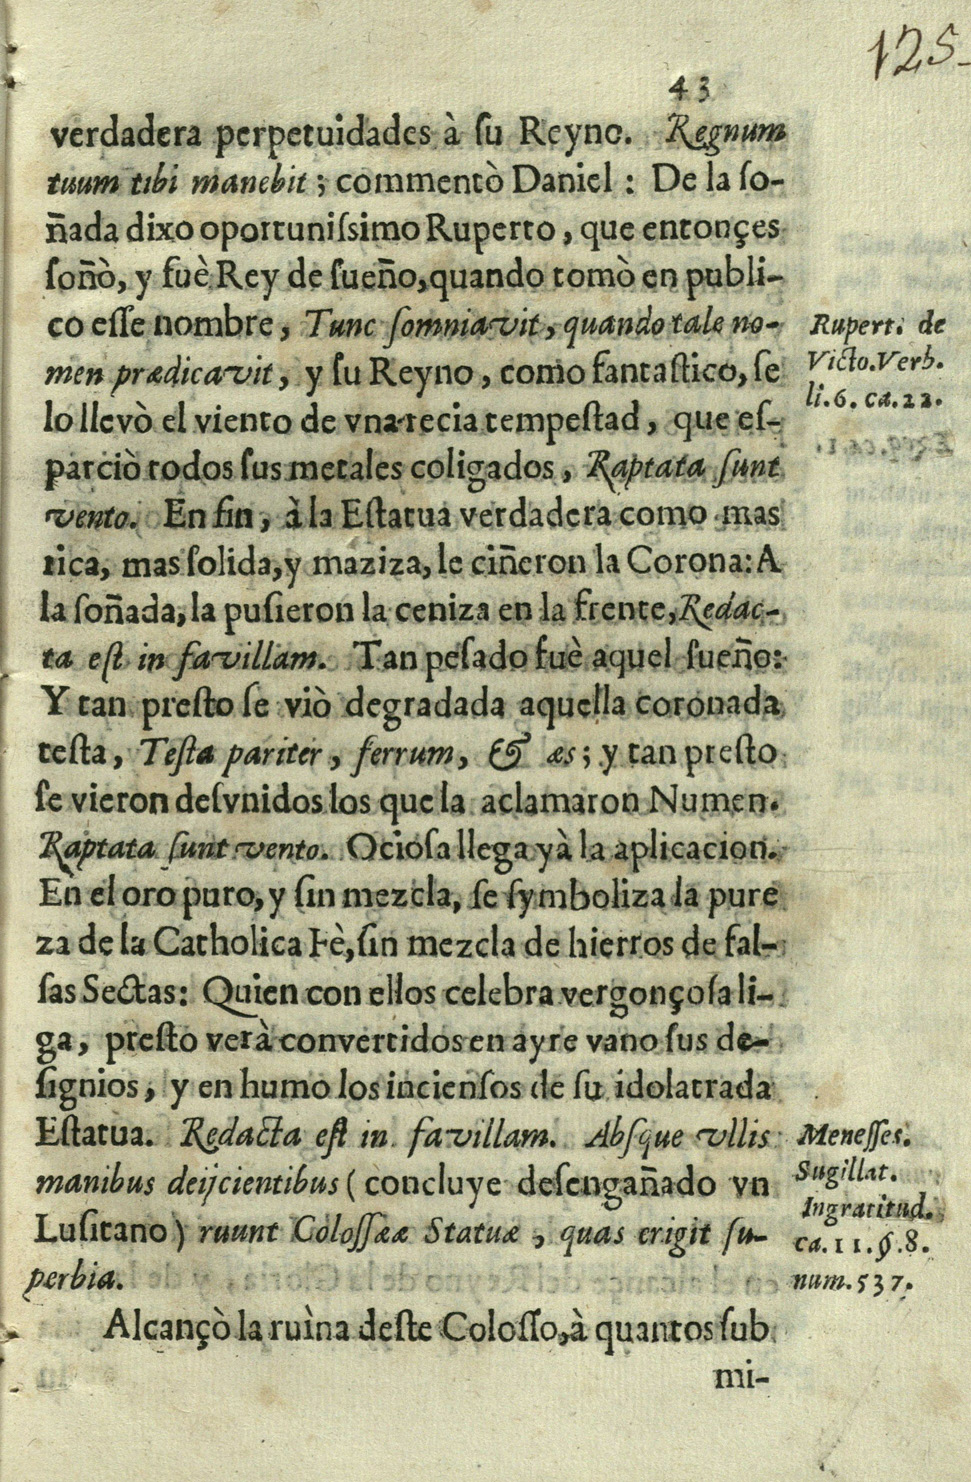 125
43
verdadera perpetuidades à ſu Reyno. Regnum
tuum tibi manebit; commentò Daniel: De la ſo-
ñada dixo oportuniſsimo Ruperto, que entonçes
ſoñò, y fuè Rey de ſueño, quando tomò en publi-
co eſſe nombre, Tunc ſomniavit, quando tale no-
men prædicavit, y ſu Reyno, como fantaſtico, ſe
lo llevò el viento de vna recia tempeſtad, que eſ-
parciò todos ſus metales coligados, Raptata ſunt
vento. En fin, à la Eſtatua verdadera como mas
rica, mas ſolida, y maziza, le ciñeron la Corona: A
la ſoñada, la puſieron la ceniza en la frente, Redac-
ta eſt in favillam. Tan peſado fuè aquel ſueño:
Y tan preſto ſe viò degradada aquella coronada
teſta, Teſta pariter, ferrum, & æs; y tan preſto
ſe vieron deſvnidos los que la aclamaron Numen.
Raptata ſunt vento. Ocioſa llega yà la aplicacion.
En el oro puro, y ſin mezcla, ſe ſymboliza la pure
za de la Catholica Fè, ſin mezcla de hierros de fal-
ſas Sectas: Quien con ellos celebra vergonçoſa li-
ga, preſto verà convertidos en ayre vano ſus de-
ſignios, y en humo los incienſos de ſu idolatrada
Eſtatua. Redacta eſt in favillam. Abſque vllis
manibus deijcientibus (concluye deſengañado vn
Luſitano) ruunt Coloſſææ Statuæ, quas erigit ſu-
perbia.
Alcançò la ruìna deſte Coloſſo, à quantos ſub
mi-
Rupert. de
Victo. Verb.
li.6. ca.22.
Meneſſes.
Sugillat.
Ingratitud.
ca.11.§.8.
num.537.